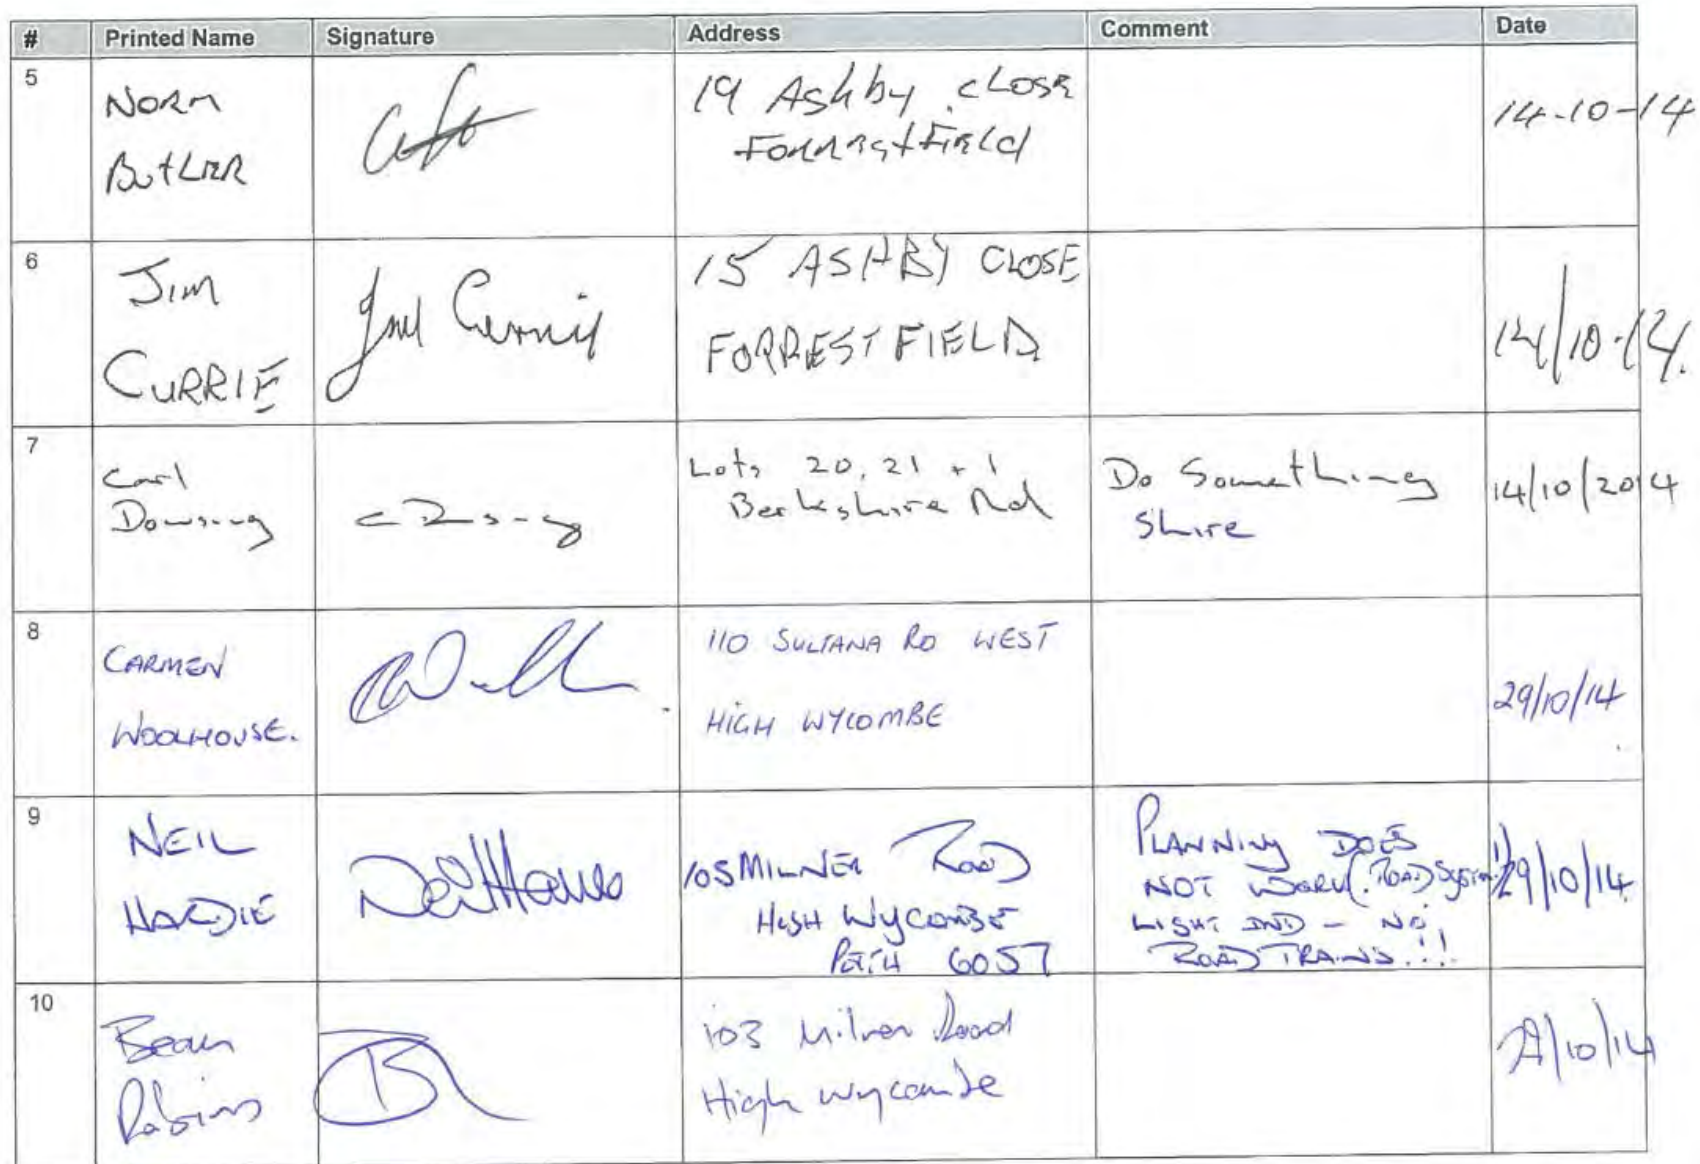 # Printed Name Signature Address Comment Date
5
NORM
BUTLER
19 Ashby close
Forrestfield
14-10-14
6
JIM
CURRIE
15 ASHBY CLOSE
FORRESTFIELD
14/10-14.
7
Carl
Dowsing
Lots 20, 21 + 1
Berkshire Rd
Do Something
Shire
14/10/2014
8
CARMEN
WOOLHOUSE.
110 SULTANA RD WEST
HIGH WYCOMBE
29/10/14
9
NEIL
HARDIE
105 MILNER ROAD
HIGH WYCOMBE
PERTH 6057
PLANNING DOES
NOT WORK (ROAD System!)
LIGHT IND - NO
ROAD TRAINS!!!
29/10/14
10
Beau
Robins
103 Milner Road
High Wycombe
29/10/14